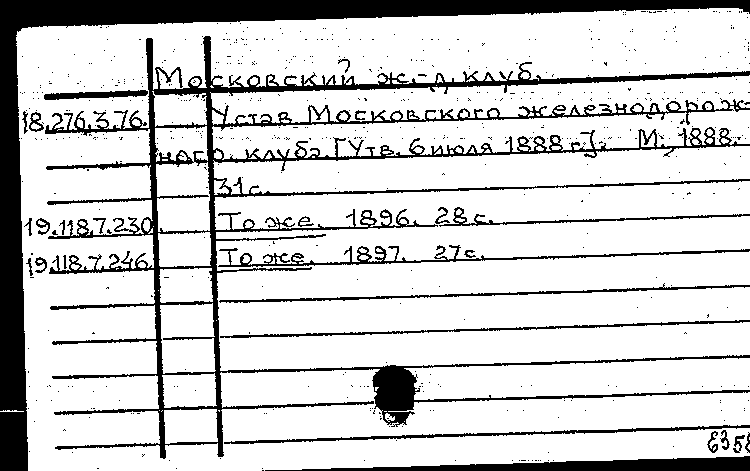 Московский ж.-д. клуб.
18.276.3.76. Устав Московского железнодорож-
ного клуба. [Утв. 6 июля 1888 г.]. М., 1888.
31с.
19.118.7.230. То же. 1896. 28 с.
19.118.7.246. То же. 1897. 27с.